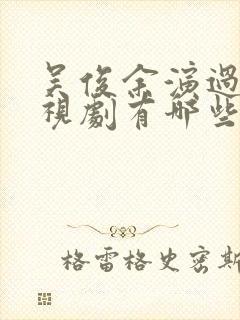 吴俊余演過
視劇有哪些
格雷格史密斯